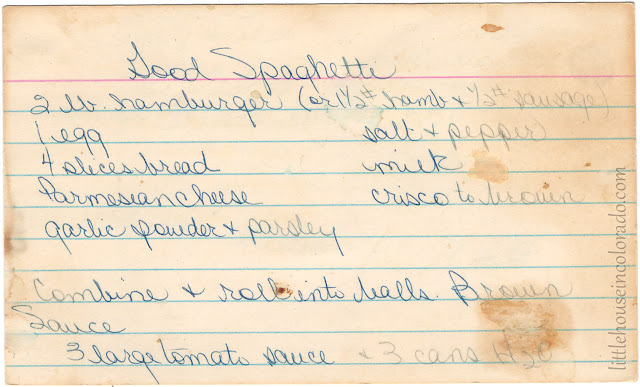 Good Spaghette
2 lb. hamburger (or 1 1/2# hamb & 1/2# sausage)
1 egg salt & pepper
4 slices bread milk
Parmesian cheese crisco to brown
garlic powder & parsley
Combine & roll into balls. Brown
Sauce
3 large tomato sauce & 3 cans H2O
littlehouseincolorado.com